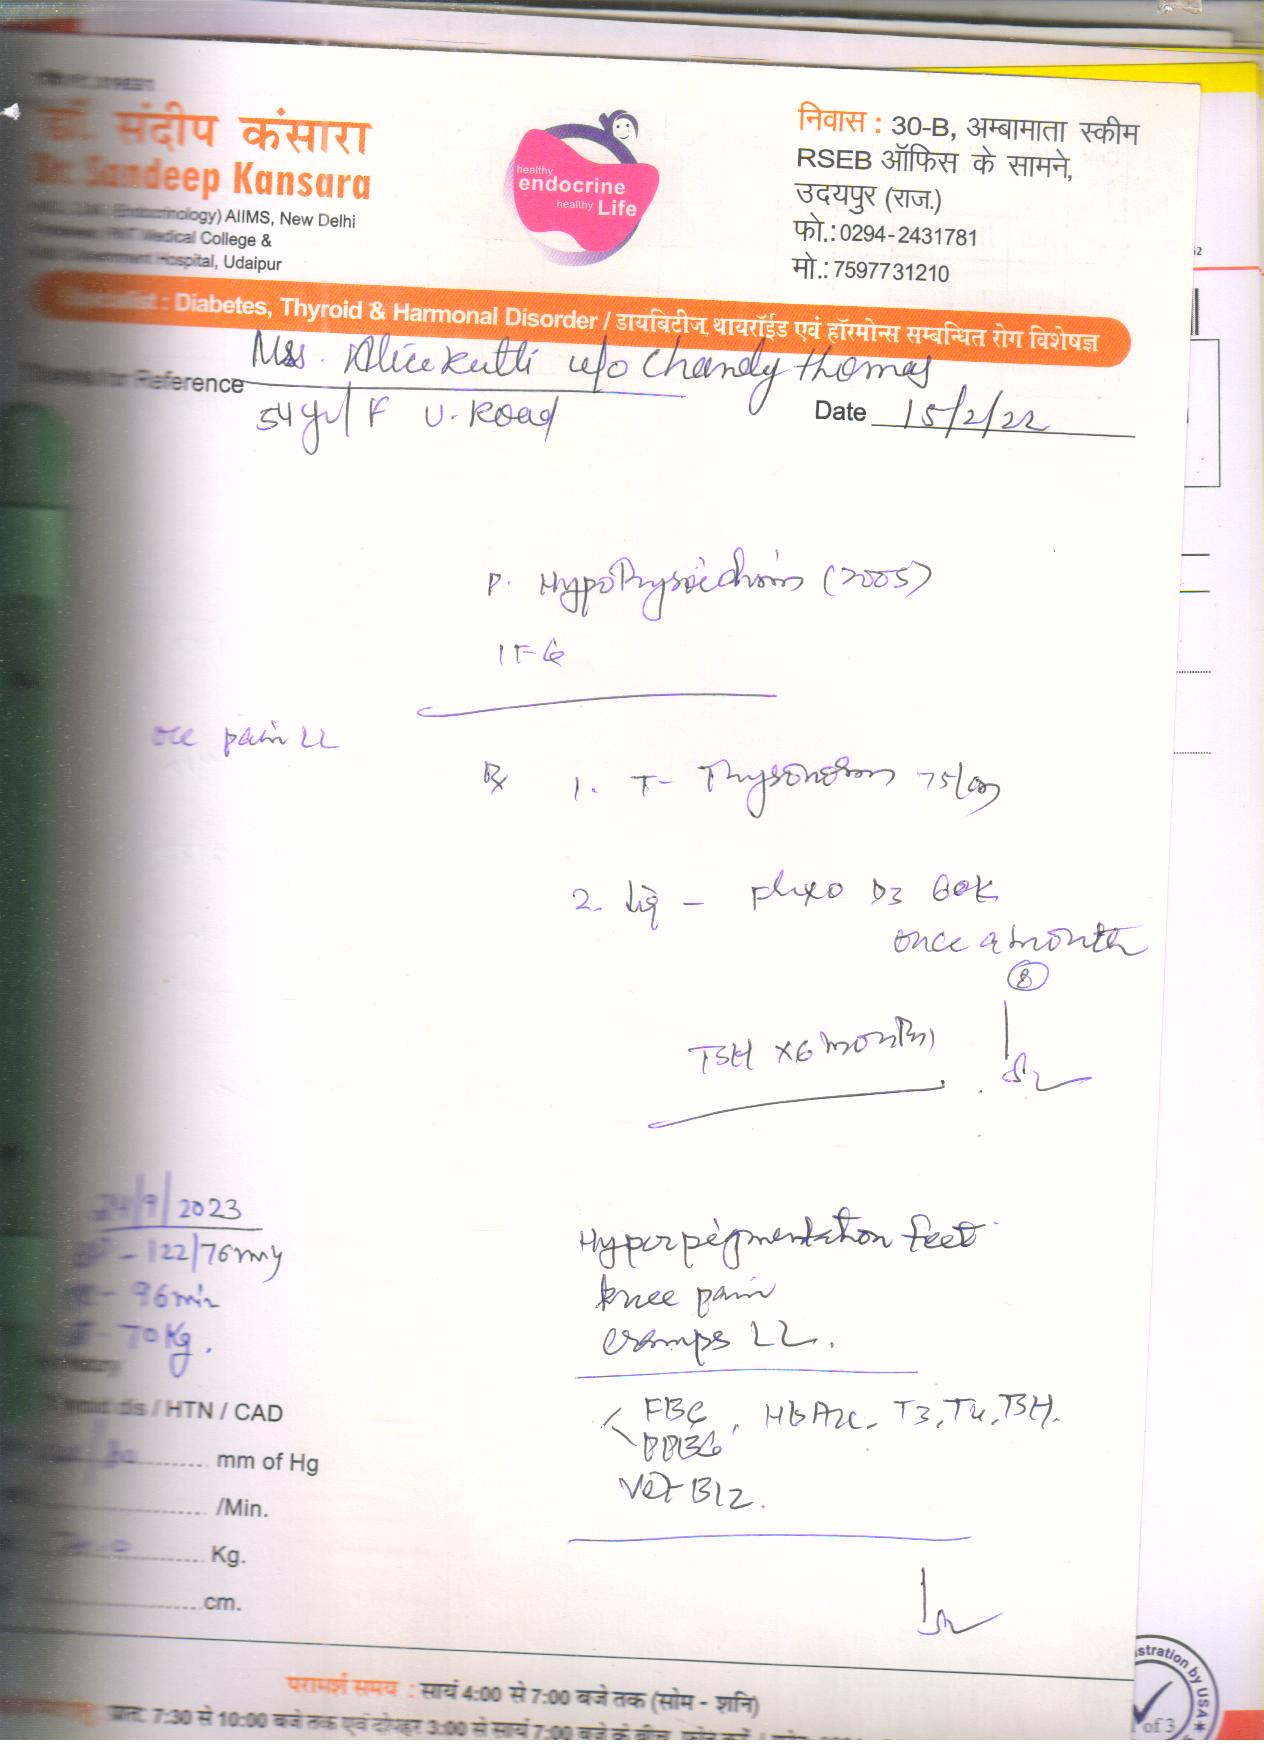 डॉ. संदीप कंसारा
Dr. Sandeep Kansara
(Endocrinology) AIIMS, New Delhi
Medical College &
Hospital, Udaipur
healthy
endocrine
healthy Life
निवास : 30-B, अम्बामाता स्कीम
RSEB ऑफिस के सामने,
उदयपुर (राज.)
फो.: 0294-2431781
मो.: 7597731210
Specialist : Diabetes, Thyroid & Harmonal Disorder / डायबिटीज, थायरॉईड एवं हॉरमोन्स सम्बन्धित रोग विशेषज्ञ
for Reference Mrs. Alicekutti w/o Chandy Thomas
54 yr/F U. Road
Date 15/2/22
P. Hypothyroidism (2005)
IFG
pain LL
Rx 1. T- Thyronorm 75
2. Liq - D3 60K
once a month
TSH x 6 months
24/9/2023
- 122/76
- 96 min
- 70 Kg.
Hyperpigmentation feet
knee pain
cramps LL.
FBG, HbA1c, T3, T4, TSH.
PPBG
Vit B12.
dis / HTN / CAD
mm of Hg
/Min.
Kg.
cm.
परामर्श समय : सायं 4:00 से 7:00 बजे तक (सोम - शनि)
प्रात: 7:30 से 10:00 बजे तक एवं दोपहर 3:00 से सायं 7:00 बजे के बीच
stration by USA
of 3